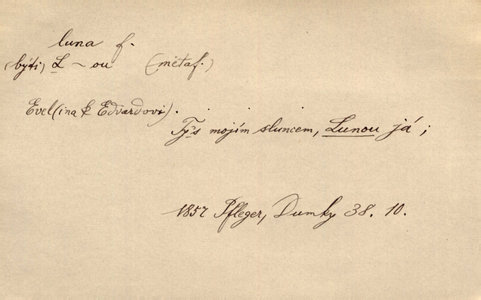 luna f.
(býti) L ~ ou (metaf.)
Evel(ina k Edvardovi).
Tys mojím sluncem, Lunou já;
1857 Pfleger, Dumky 38. 10.